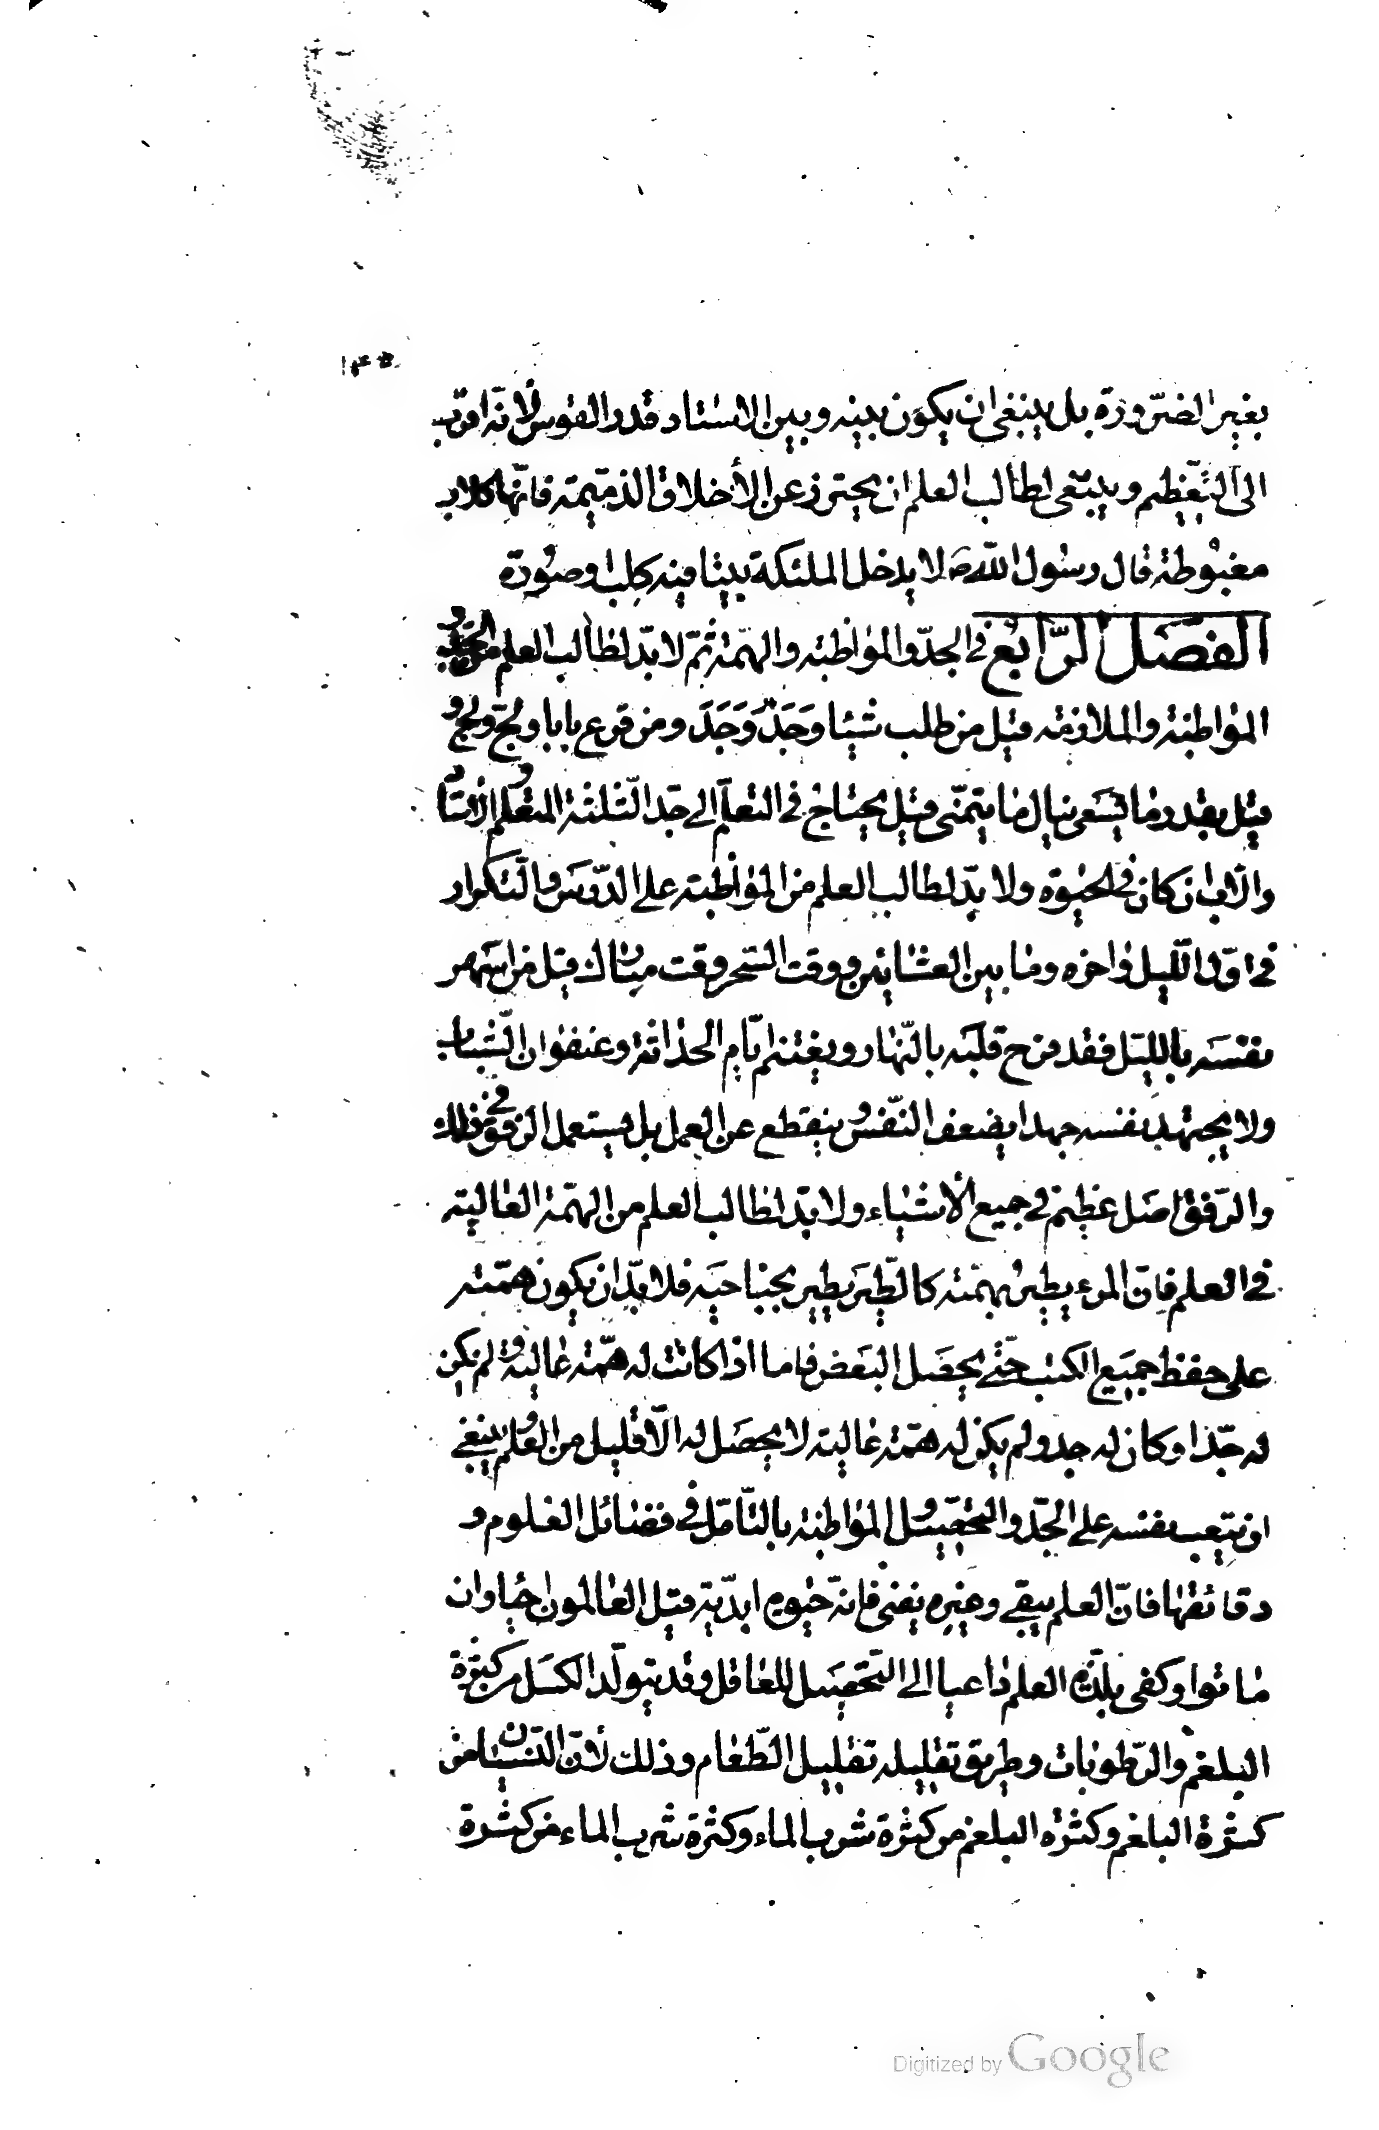 ١٣٥
بغير الضرورة بل ينبغى ان يكون بينه وبين الاستاد قدر القوس لأنه اقرب
الى التعظيم وينبغى لطالب العلم ان يحترز عن الأخلاق الذميمة فانها كلاب
قال رسول الله ص لا يدخل الملئكة بيتا فيه كلب او صورة
الفصل الرابع في الجد والمواظبة والهمة ثم لا بد لطالب العلم من الجد و
المواظبة والملازمة قيل من طلب شيئا وجد وجد ومن قرع بابا ولج ولج و
قيل بقدر ما يسعى ينال ما يتمنى قيل يحتاج في التعلم الى جد الثلثة المتعلم والأستاد
والاب ان كان في الحيوة ولا بد لطالب العلم من المواظبة على الدرس والتكرار
في اول الليل واخره وما بين العشائين ووقت السحر وقت مبارك قيل من اسهر
نفسه بالليل فقد فرح قلبه بالنهار ويغتنم ايام الحداثة وعنفوان الشباب
ولا يجتهد نفسه جهدا يضعف النفس وينقطع عن العمل بل يستعمل الرفق في ذلك
والرفق اصل عظيم في جميع الأشياء ولا بد لطالب العلم من الهمة العالية
في العلم فان المرء يطير بهمته كالطير يطير بجناحيه فلا بد ان يكون همته
على حفظ جميع الكتب حتى يحصل البعض فاما اذا كانت له همة عالية ولم يكن
له جد او كان له جد ولم يكن له همة عالية لا يحصل له الا قليل من العلم وينبغي
ان يتعب نفسه على الجد والتحصيل والمواظبة بالتأمل في فضائل العلوم و
دقائقها فان العلم يبقى وغيره يفنى فانه حيوة ابدية قيل العالمون احياء وان
ماتوا وكفى بلذة العلم داعيا الى التحصيل للعاقل وقد يتولد الكسل من كثرة
البلغم والرطوبات وطريق تقليله تقليل الطعام وذلك لأن النسيان من
كثرة البلغم وكثرة البلغم من كثرة شرب الماء وكثرة شرب الماء من كثرة
Digitized by Google